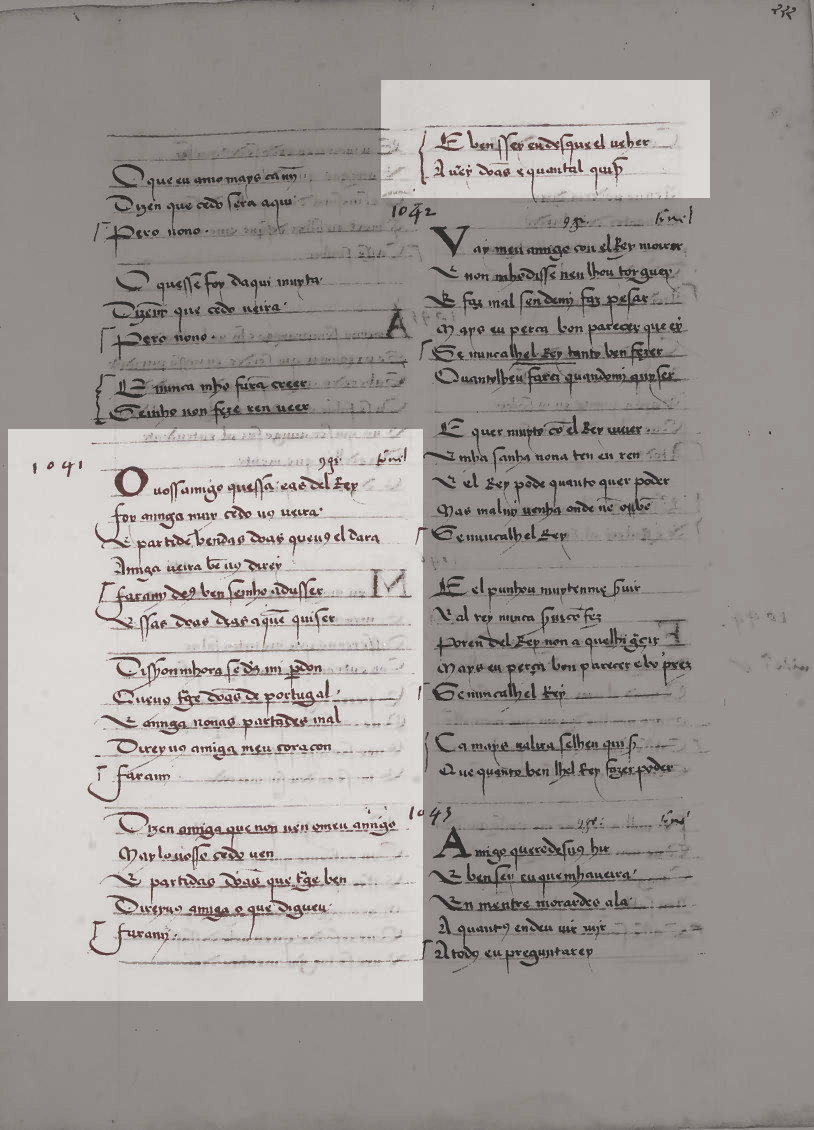 O que eu amo mays ca mī
Dizen que cedo sera aqui
Pero nono.
O quesse foy daqui muyta
Dizenm̄ que cedo ueira.
Pero nono.
E nunca mho fara creer
Semho non feze ren ueer
1041
O uossamigo quessa eas del Rey
foy amiga muy cedo uꝯ ueira.
E partide bendas doas queuꝯ el dara
Amiga ueira bē uꝯ direy
faramj deꝯ ben semho adusser
E ssas doas deas aquē quiser
M
Disyonmhora se dꝯ mi pdon
Queuꝯ tᵃge doas de portugal.
E amiga nonas partades mal
Direyuꝯ amiga meu coraçon
faramj
Dizen amiga que non uen omeu amigo
Mar lo uosso cedo uen
E partidas doas que tᵃge ben
Direyuꝯ amiga o que digueu
faramj.
E ben sser endesque el ueher
Auer doas e quantal
1042
Vay meu amigo con el Rey morar
E non mhodisse nen lhou torguey
E faz mal sen demi faz pesar
Mays eu perca bon parecer que ey
Se nuncalhel Rey tanto ben fezer
Quantolheu farei quandomi quyser
E quer muyto cō el Rey uiuer.
E mha sanha nona ten en ren
E el Rey pode quanto quer poder
Mas malmj uenha onde nē
Se nuncalhel Rey
E el punhou muytenme
E al rey nunca
Poren del Rey non a quelhi
Mays eu perça bon parecer e
Se nuncalhel Rey
Ca mays ualira selhen
Que quanto ben lhel Rey fazer poder
1043
Amigo queredesuꝯ hir
E ben sey eu quemhaueira.
En mentre morardes ala
A quantꝯ endeu uir uijr
A todꝯ eu preguntarey